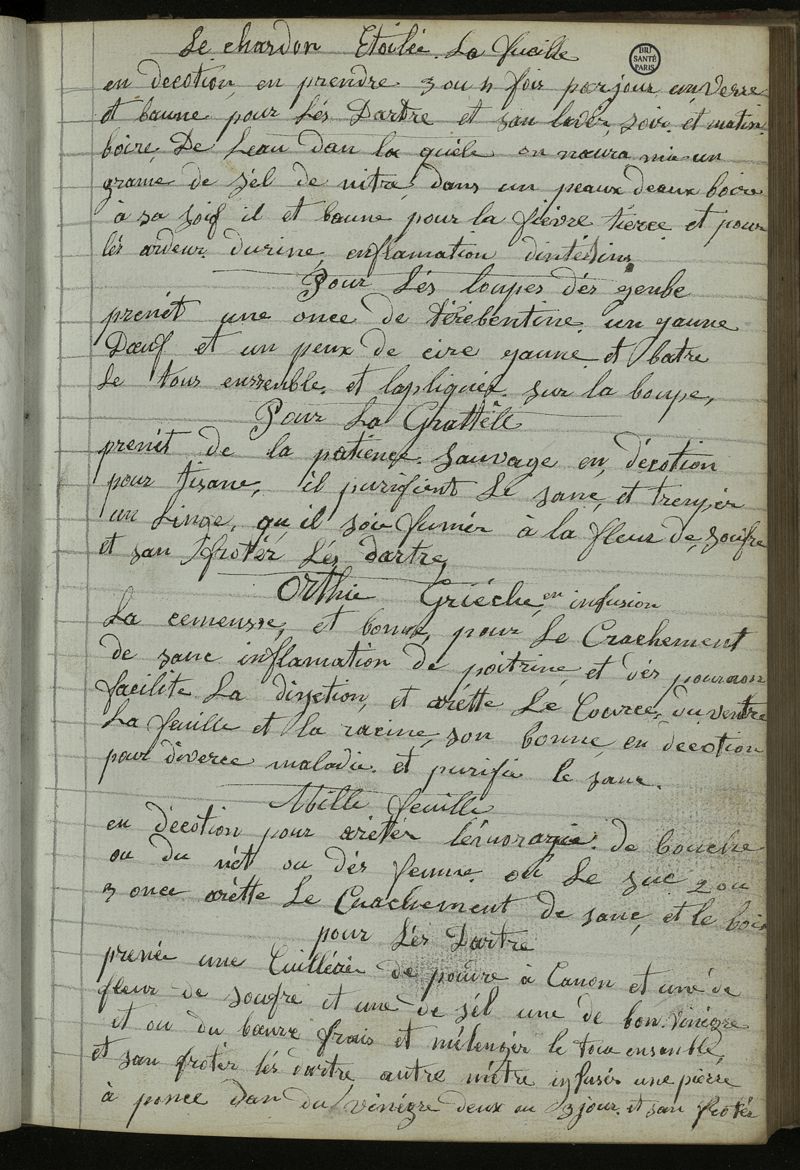 Le chardon Etoilée La fueille
BIU
SANTÉ
PARIS
en decotion en prendre 3 ou 4 foir par jour un verre
et baune pour Lés Dartre et san lavér, soir et matin
boire De Leau dan la quéle on naura mie un
grame de sél de nitre dans un peaux deaux boire
à sa soif il et baune pour la fievre tierce et pour
lés ardeur durine, enflamation dintéstins
Pour Lés loupes dés genbe
prenét une once de térébentine un gaune
Dœuf et un peux de cire gaune et batre
le tous enssenble et lapliquér sur la loupe,
Pour La Grattéle
prenét de la patience sauvage en décotion
pour tisane, il purifient Le sanc, et trenpér
un Linge, qu il soie fumér à la fleur de soufre
et san frotér Lés dartre
Orthie Grièche en infusion
La cemensse, et bonne, pour Le Crachement
de sanc inflamation de poitrine et dés poumon
facilite La dijetion, et arétte Le Cource du ventre
La feuille et la racine, son bonne en decotion
pour diverce maladie et purifie le sanc.
Mille feuille
en decotion pour arétér lémoragie de bouche
ou du nét ou dés femme ou Le suc 2 ou
3 once arétte Le Crachement de sanc, et le boire
pour Lés Dartre
prenée une Cuillérée de poudre à Canon et une de
fleur de soufre et une de sél une de bon vinégre
et ou du beurre frais et mélengér le tous ensanble,
et san frotér lés dartre autre métre infusér une pierre
à ponce dan du vinégre deux ou 3 jour et san frotér